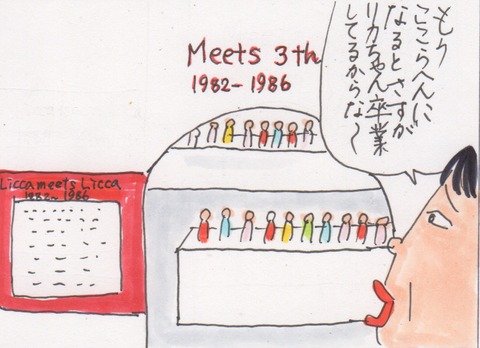 Meets 3th
1982-1986
もう
ここらへんに
なるとさすが
リカちゃん卒業
してるからな〜
Licca meets Licca
1982~1986